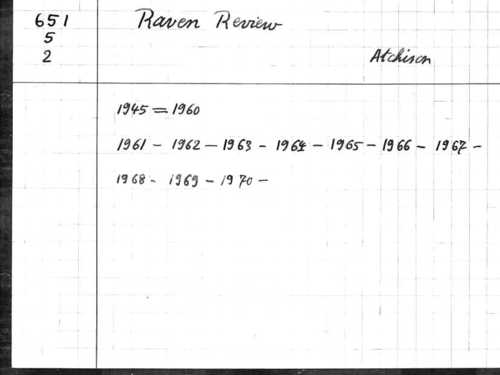 651 Raven Review
5
2 Atchison
1945 = 1960
1961 - 1962 - 1963 - 1964 - 1965 - 1966 - 1967 -
1968 - 1969 - 1970 -